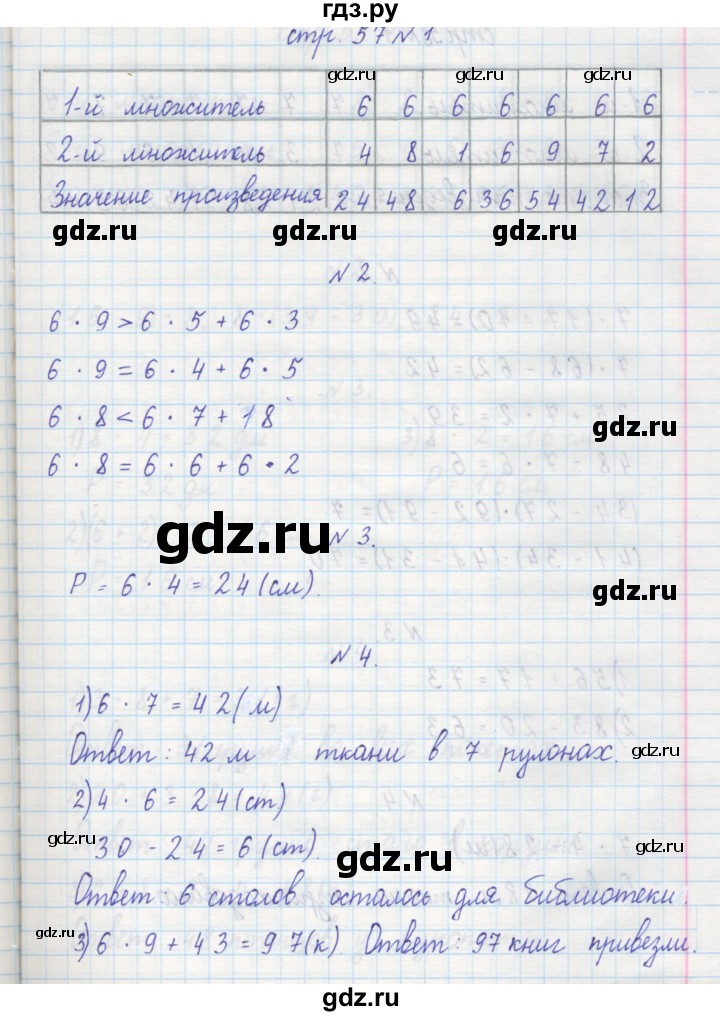 гдз.ру
стр. 57 N 1
gdz.ru gdz.ru gdz.ru
1-й множитель 6 6 6 6 6 6 6
2-й множитель 4 8 1 6 9 7 2
Значение произведения 24 48 6 36 54 42 12
gdz.ru gdz.ru gdz.ru
N 2.
6 · 9 > 6 · 5 + 6 · 3
6 · 9 = 6 · 4 + 6 · 5
6 · 8 < 6 · 7 + 18
gdz.ru
6 · 8 = 6 · 6 + 6 · 2
gdz.ru
N 3.
P = 6 · 4 = 24 (см).
gdz.ru
N 4.
1) 6 · 7 = 42 (м)
Ответ: 42 м ткани в 7 рулонах.
gdz.ru
2) 4 · 6 = 24 (ст)
30 - 24 = 6 (ст).
gdz.ru gdz.ru gdz.ru
Ответ 6 столов осталось для библиотеки.
gdz.ru
3) 6 · 9 + 43 = 97 (к). Ответ: 97 книг привезли.
gdz.ru